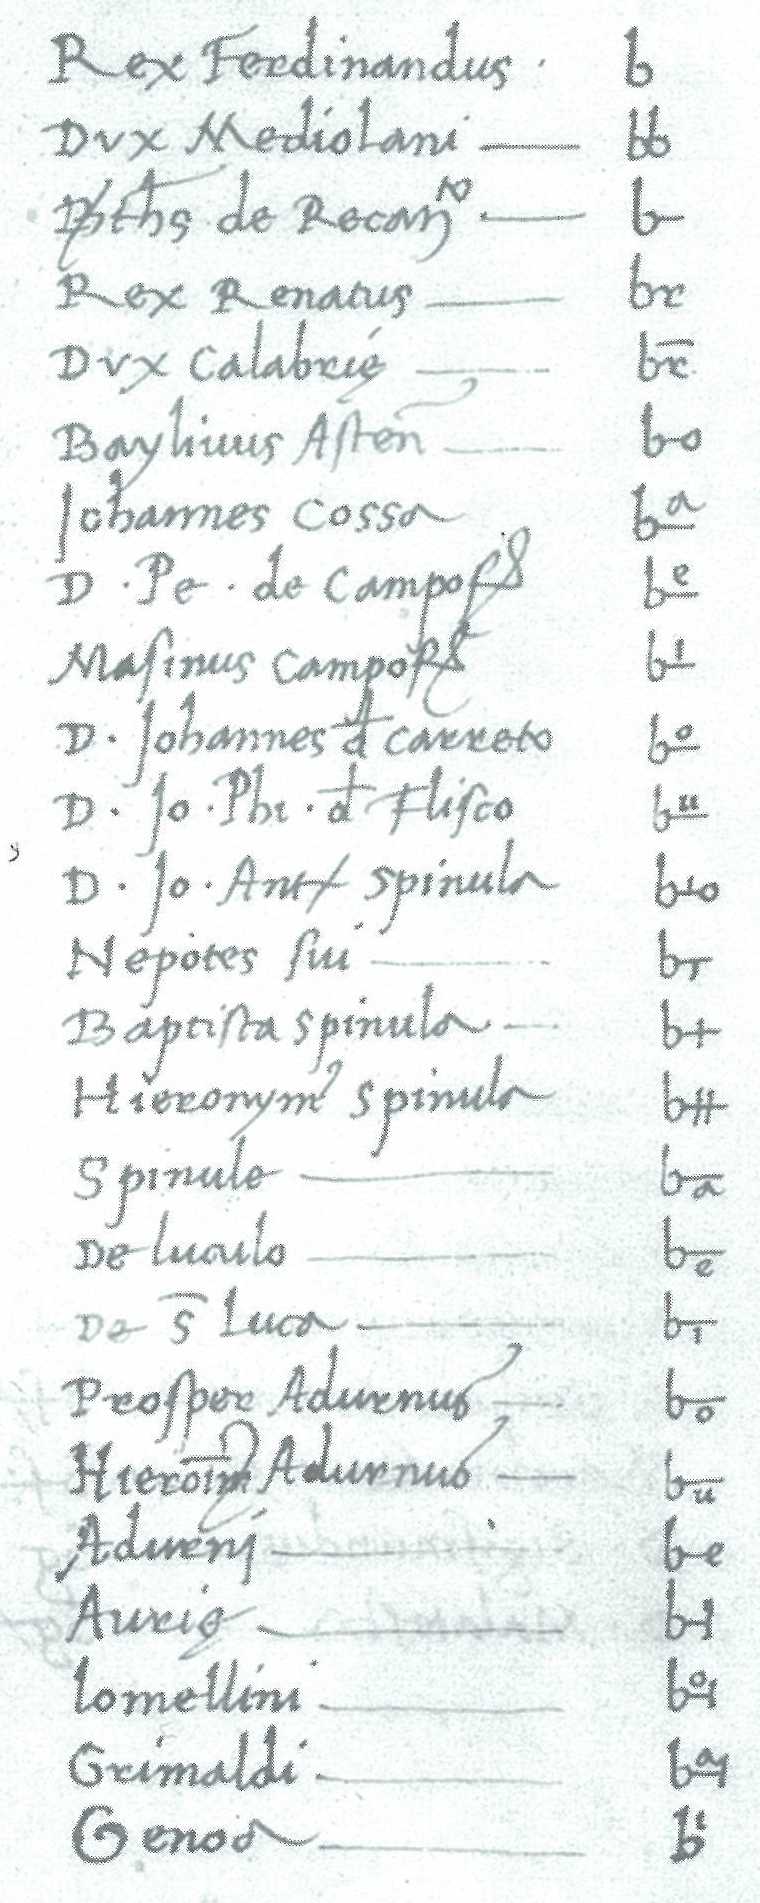 Rex Ferdinandus · b
Dux Mediolani — bb
de Recan
Rex Renatus — br
Dux Calabrie — br̄
Bayliuus Asten — b-o
Johannes Cossa bᵃ
D · Pe · de Campofᵒ bᵉ
Masinus Campof bⁱ
D · Johannes đ Carreto bᵒ
D · Jo · Phi · đ Flisco bᵘ
D · Jo · Ant Spinula
Nepotes sui —
Baptista Spinula — b+
Hieronym⁹ Spinula b#
Spinule — bₐ
De luculo — bₑ
De s̄ Luca — bᵢ
Prosper Adurnus — bₒ
Hieroim Adurnus — bᵤ
Adurnj — b-e
Aurie —
Lomellini —
Grimaldi —
Genoa — bᵗ